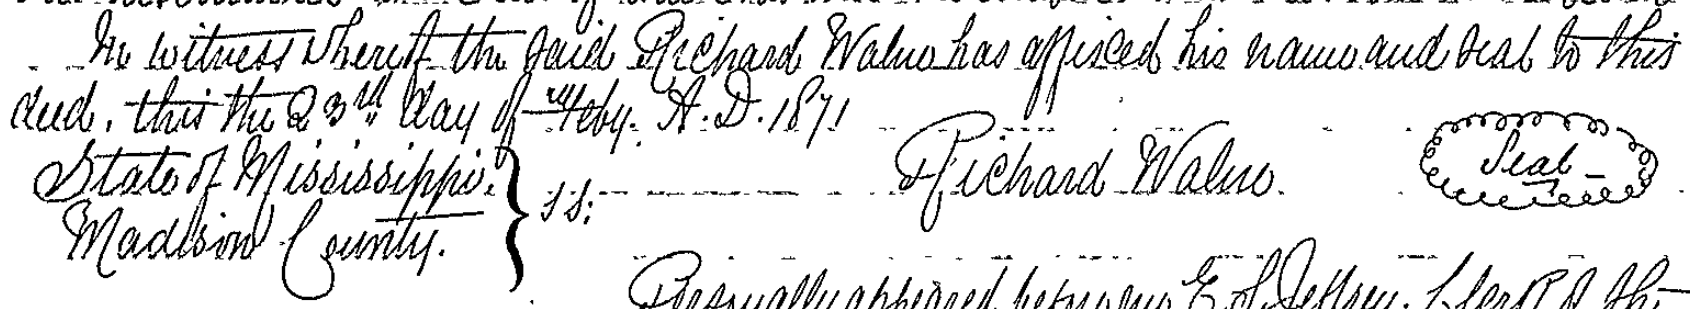 In witness whereof the said Richard Walne has affixed his name and seal to this
deed, this the 23rd day of Feby. A.D. 1871
Richard Walne. Seal
State of Mississippi.
Madison County. } SS:
Personally appeared before me E. S. Jeffrey, Clerk of the